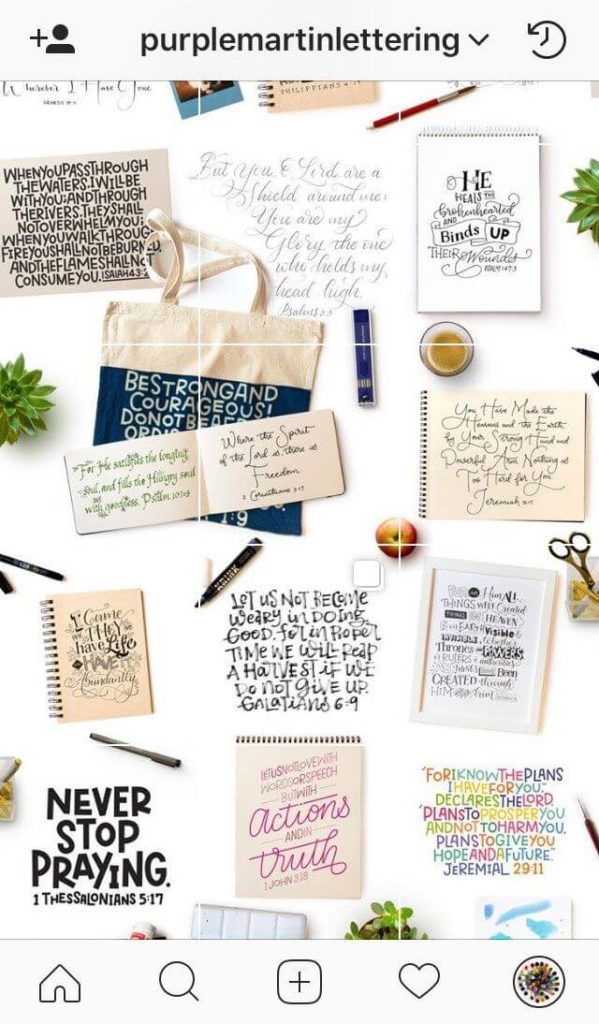 purplemartinlettering
Wherever I Have Gone
PHILIPPIANS
WHEN YOU PASS THROUGH
THE WATERS, I WILL BE
WITH YOU; AND THROUGH
THE RIVERS, THEY SHALL
NOT OVERWHELM YOU;
WHEN YOU WALK THROUGH
FIRE YOU SHALL NOT BE BURNED,
AND THE FLAME SHALL NOT
CONSUME YOU. ISAIAH 43:2
But You, O Lord, are a
Shield around me;
You are my
Glory, the one
who holds my
head high.
Psalms 3:3
HE
HEALS THE
brokenhearted
AND
Binds UP
THEIR Wounds
PSALM 147:3
BE STRONG AND
COURAGEOUS!
DO NOT BE
1:9
For He satisfies the longing
soul, and fills the Hungry soul
with goodness. Psalm 107:9
Where the Spirit
of the Lord is, there is
Freedom
2 Corinthians 3:17
You Have Made the
Heavens and the Earth
by Your Strong Hand and
Powerful Arm. Nothing is
Too Hard for You
Jeremiah
I Came
THAT THEY
MAY
have Life
AND
HAVE IT
Abundantly
LET US NOT BECOME
WEARY IN DOING
GOOD, for in PROPER
TIME WE WILL REAP
A HARVEST IF WE
DO NOT GIVE UP.
GALATIANS 6:9
FOR BY Him ALL
THINGS WERE Created
THINGS IN HEAVEN
ON EARTH Visible
INVISIBLE, whether
Thrones OR POWERS
OR RULERS OR authorities
all things have Been
CREATED through
HIM AND for him
NEVER
STOP
PRAYING.
1 THESSALONIANS 5:17
LET US NOT LOVE WITH
WORDS OR SPEECH
BUT WITH
actions
AND IN
truth
1 JOHN 3:18
"FOR I KNOW THE PLANS
I HAVE FOR YOU,"
DECLARES THE LORD,
"PLANS TO PROSPER YOU
AND NOT TO HARM YOU,
PLANS TO GIVE YOU
HOPE AND A FUTURE."
JEREMIAH 29:11